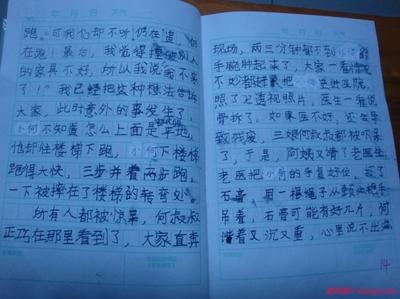 年 月 日 天气
跑。可我们却不听仍在追、仍
在跑！最后，我觉得撞破别人
的家具不好，所以我说我不来
了！"我已经把这种想法告诉
大家，此时意外的事发生了，
小何不知道怎么上面是平地
他却往楼梯下跑，小何下楼梯
跑得太快，三步并着两步跑，
一下被摔在了楼梯的转弯处。
所有人都被惊呆，何叔叔
正巧在那里看到了，大家直奔
现场，两三分钟都不到
手腕肿起来了，大家一看情况
不妙都好着把小何送进医院，
照了X透视照片，医生一看说
骨折了，如果医不好，还会导
致残废，三娘何叔叔都被吓呆
了，于是，阿姨又请了老医生
老医把小何的手复好位，敷了
石膏，用一根绳子从颈处把手
吊着，石膏可能有好几斤，何
着又沉又重，心里说不出
14